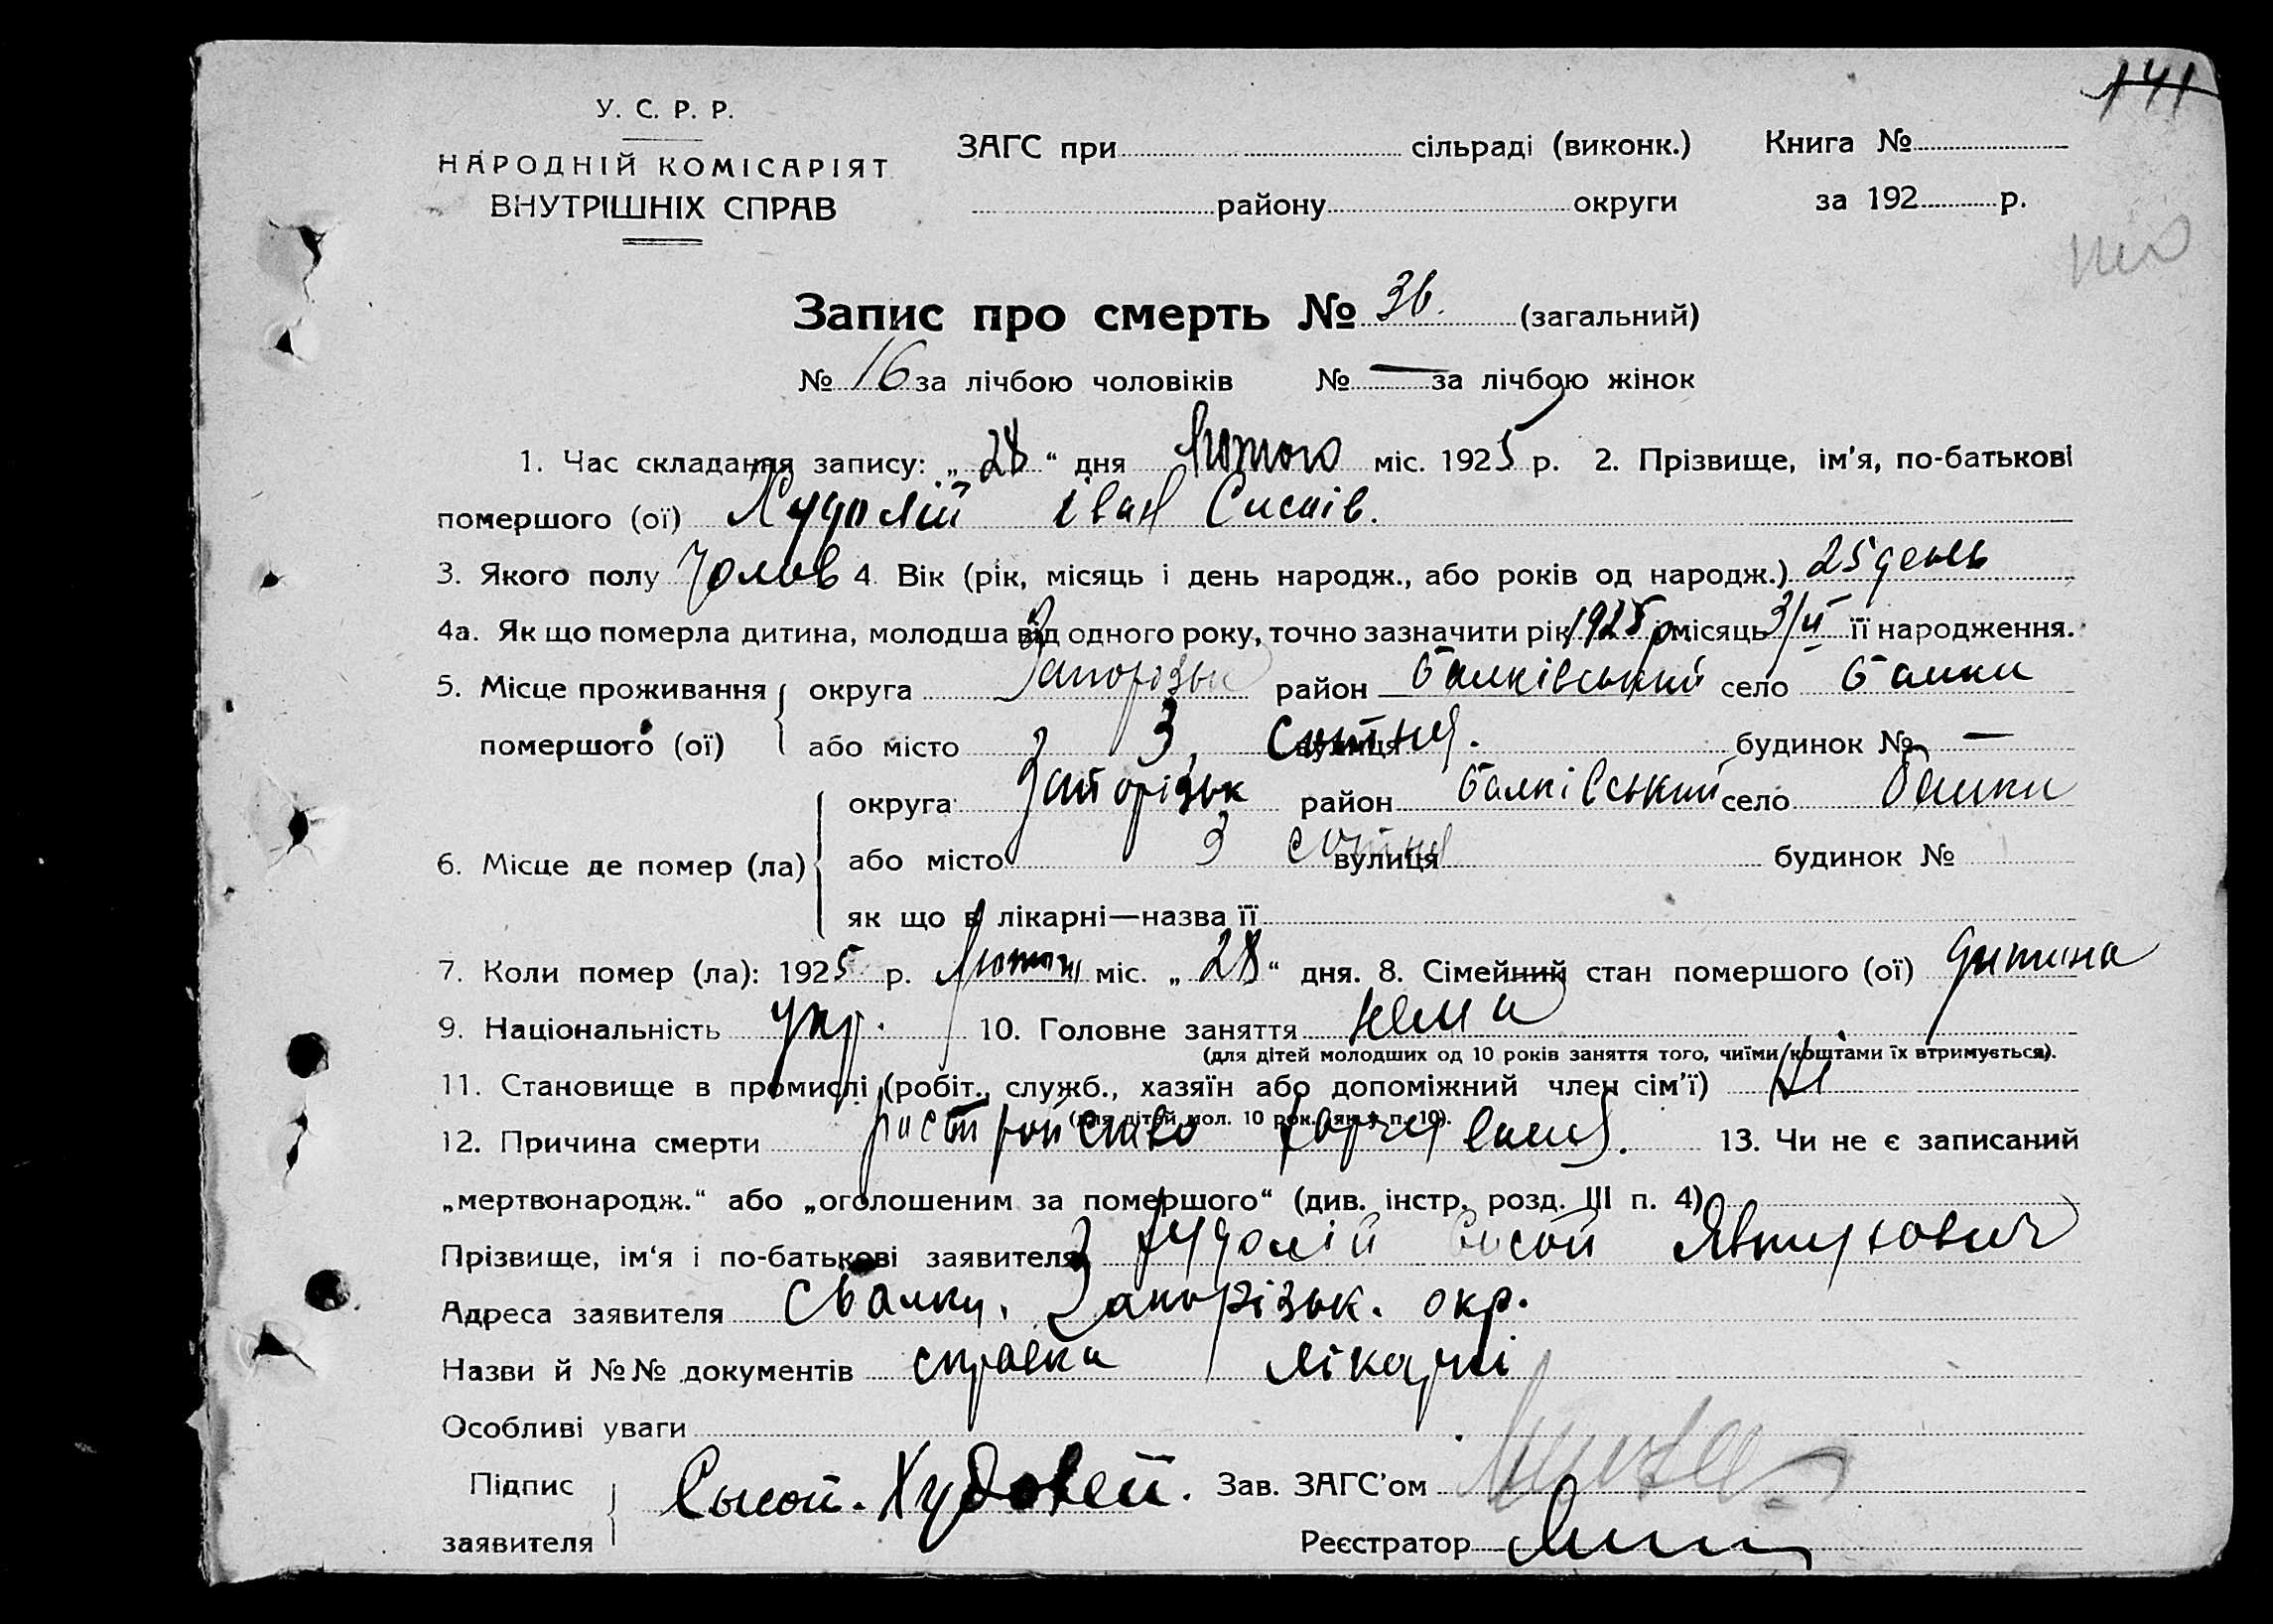 141
У. С. Р. Р.
НАРОДНІЙ КОМІСАРІЯТ
ВНУТРІШНІХ СПРАВ
ЗАГС при сільраді (виконк.) Книга №
району округи за 192 р.
Запис про смерть № 36. (загальний)
№ 16 за лічбою чоловіків № — за лічбою жінок
1. Час складання запису: „28“ дня Лютого міс. 1925 р. 2. Прізвище, ім'я, по-батькові
помершого (ої) Худолій Іван Сисоїв.
3. Якого полу Чолов 4. Вік (рік, місяць і день народж., або років од народж.) 25 день
4а. Як що померла дитина, молодша від одного року, точно зазначити рік 1925 р місяць 3/II її народження.
5. Місце проживання помершого (ої) округа Запорізьк район Балківський село Балки
або місто 3 сотня. вулиця будинок № —
6. Місце де помер (ла) округа Запорізьк район Балківський село Балки
або місто 3 сотня вулиця будинок №
як що в лікарні—назва її
7. Коли помер (ла): 1925 р. Лютого міс. „28“ дня. 8. Сімейний стан помершого (ої) дитина
9. Національність укр. 10. Головне заняття нема
(для дітей молодших од 10 років заняття того, чиїми коштами їх втримується).
11. Становище в промислі (робіт., служб., хазяїн або допоміжний член сім'ї) Ні
(для дітей мол. 10 рок. як у п. 10).
12. Причина смерти 13. Чи не є записаний
„мертвонародж.“ або „оголошеним за помершого“ (див. інстр. розд. III п. 4)
Прізвище, ім'я і по-батькові заявителя Худолій Сисой Явтухович
Адреса заявителя с Балки, Запорізьк. окр.
Назви й №№ документів справка лікарні
Особливі уваги
Підпис заявителя Сысой. Худолей. Зав. ЗАГС'ом
Реєстратор